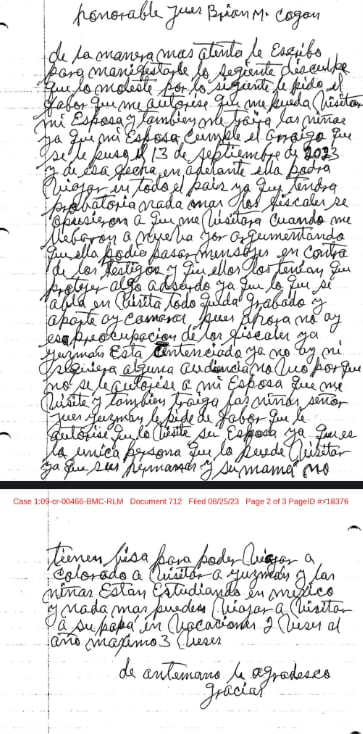 honorable Jues Brian M. Cogan
de la manera mas atenta le Escribo
para manifestarle lo segiente disculpe
que lo moleste por lo sigiente le pido el
fabor que me autorise que me pueda Visitar
mi Esposa y tambien me traiga las niñas
ya que mi Esposa Cumple el arraigo que
se le puso el 13 de septiembre de 2023
y de esa fecha en adelante ella podra
Viajar en todo el pais ya que tendra
probatoria nada mas los fiscales se
opusieron a que me Visitara cuando me
llebaron a nueba yor argumentando
que ella podia pasar mensajes en contra
de los testigos y que ellos los tenian que
proteger algo adsurdo ya que lo que se
abla en Visita todo queda grabado y
aparte ay camaras pues ahora no ay
esa preocupacion de los fiscales ya
guzman Esta Sentenciado ya no ay ni
siquiera alguna audiencia no Veo por que
no se le autorise a mi Esposa que me
Visite y tambien traiga las niñas señor
Jues guzman le pide de fabor que le
autorise que lo Visite su Esposa ya que es
la unica persona que lo puede Visitar
ya que sus hermanas y su mamá no
Case 1:09-cr-00466-BMC-RLM Document 712 Filed 08/25/23 Page 2 of 3 PageID #: 18376
tienen Visa para poder Viajar a
colorado a Visitar a guzman y las
niñas Estan Estudiando en mexico
y nada mas pueden Viajar a Visitar
a su papa en Vacaciones 2 Veses al
año maximo 3 Veses
de antemano le agradesco
gracias